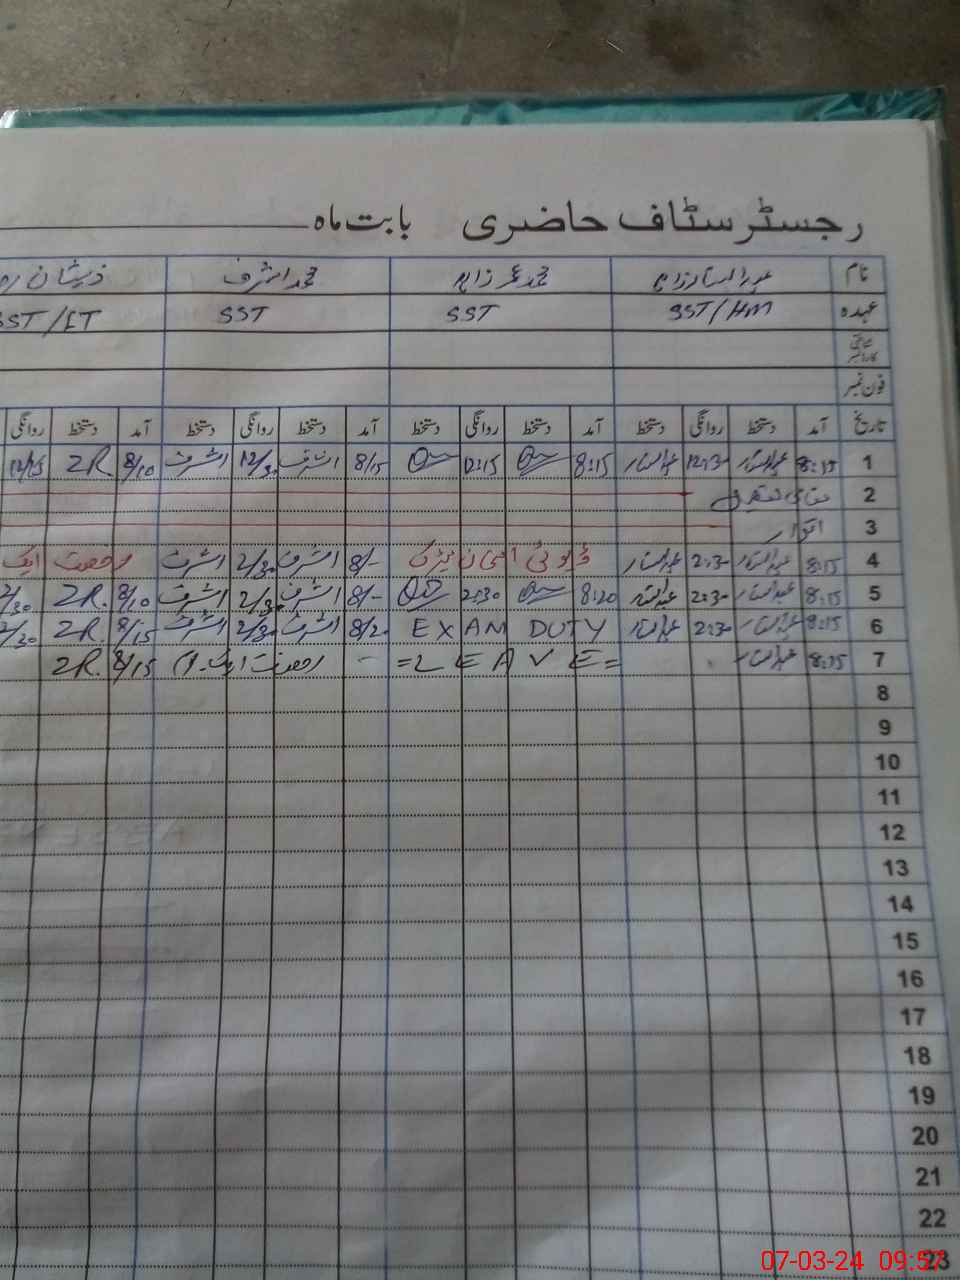 رجسٹر سٹاف حاضری بابت ماہ
نام عبدالستار زاہد محمد عمر زاہد محمد اشرف ذیشان
عہدہ SST/HM SST SST SST/ET
شناختی کارڈ نمبر
فون نمبر
تاریخ آمد دستخط روانگی دستخط آمد دستخط روانگی دستخط آمد دستخط روانگی دستخط آمد دستخط روانگی
1 8:15 عبدالستار 12:30 عبدالستار 8:15 12:15 8/15 اشرف 12/30 اشرف 8/10 ZR 12/15
2 مقامی تعطیل
3 اتوار
4 8:15 عبدالستار 2:30 عبدالستار ڈیوٹی 8/- اشرف 2/30 اشرف رخصت ایک
5 8:15 عبدالستار 2:30 عبدالستار 8:20 2:30 8/- اشرف 2/30 اشرف 8/10 ZR. 2/30
6 8:15 عبدالستار 2:30 عبدالستار EXAM DUTY 8/20 اشرف 2/30 اشرف 8/15 ZR. 2/30
7 8:15 عبدالستار =LEAVE= رخصت ایک 8/15 ZR.
8
9
10
11
12
13
14
15
16
17
18
19
20
21
22
23
07-03-24 09:57